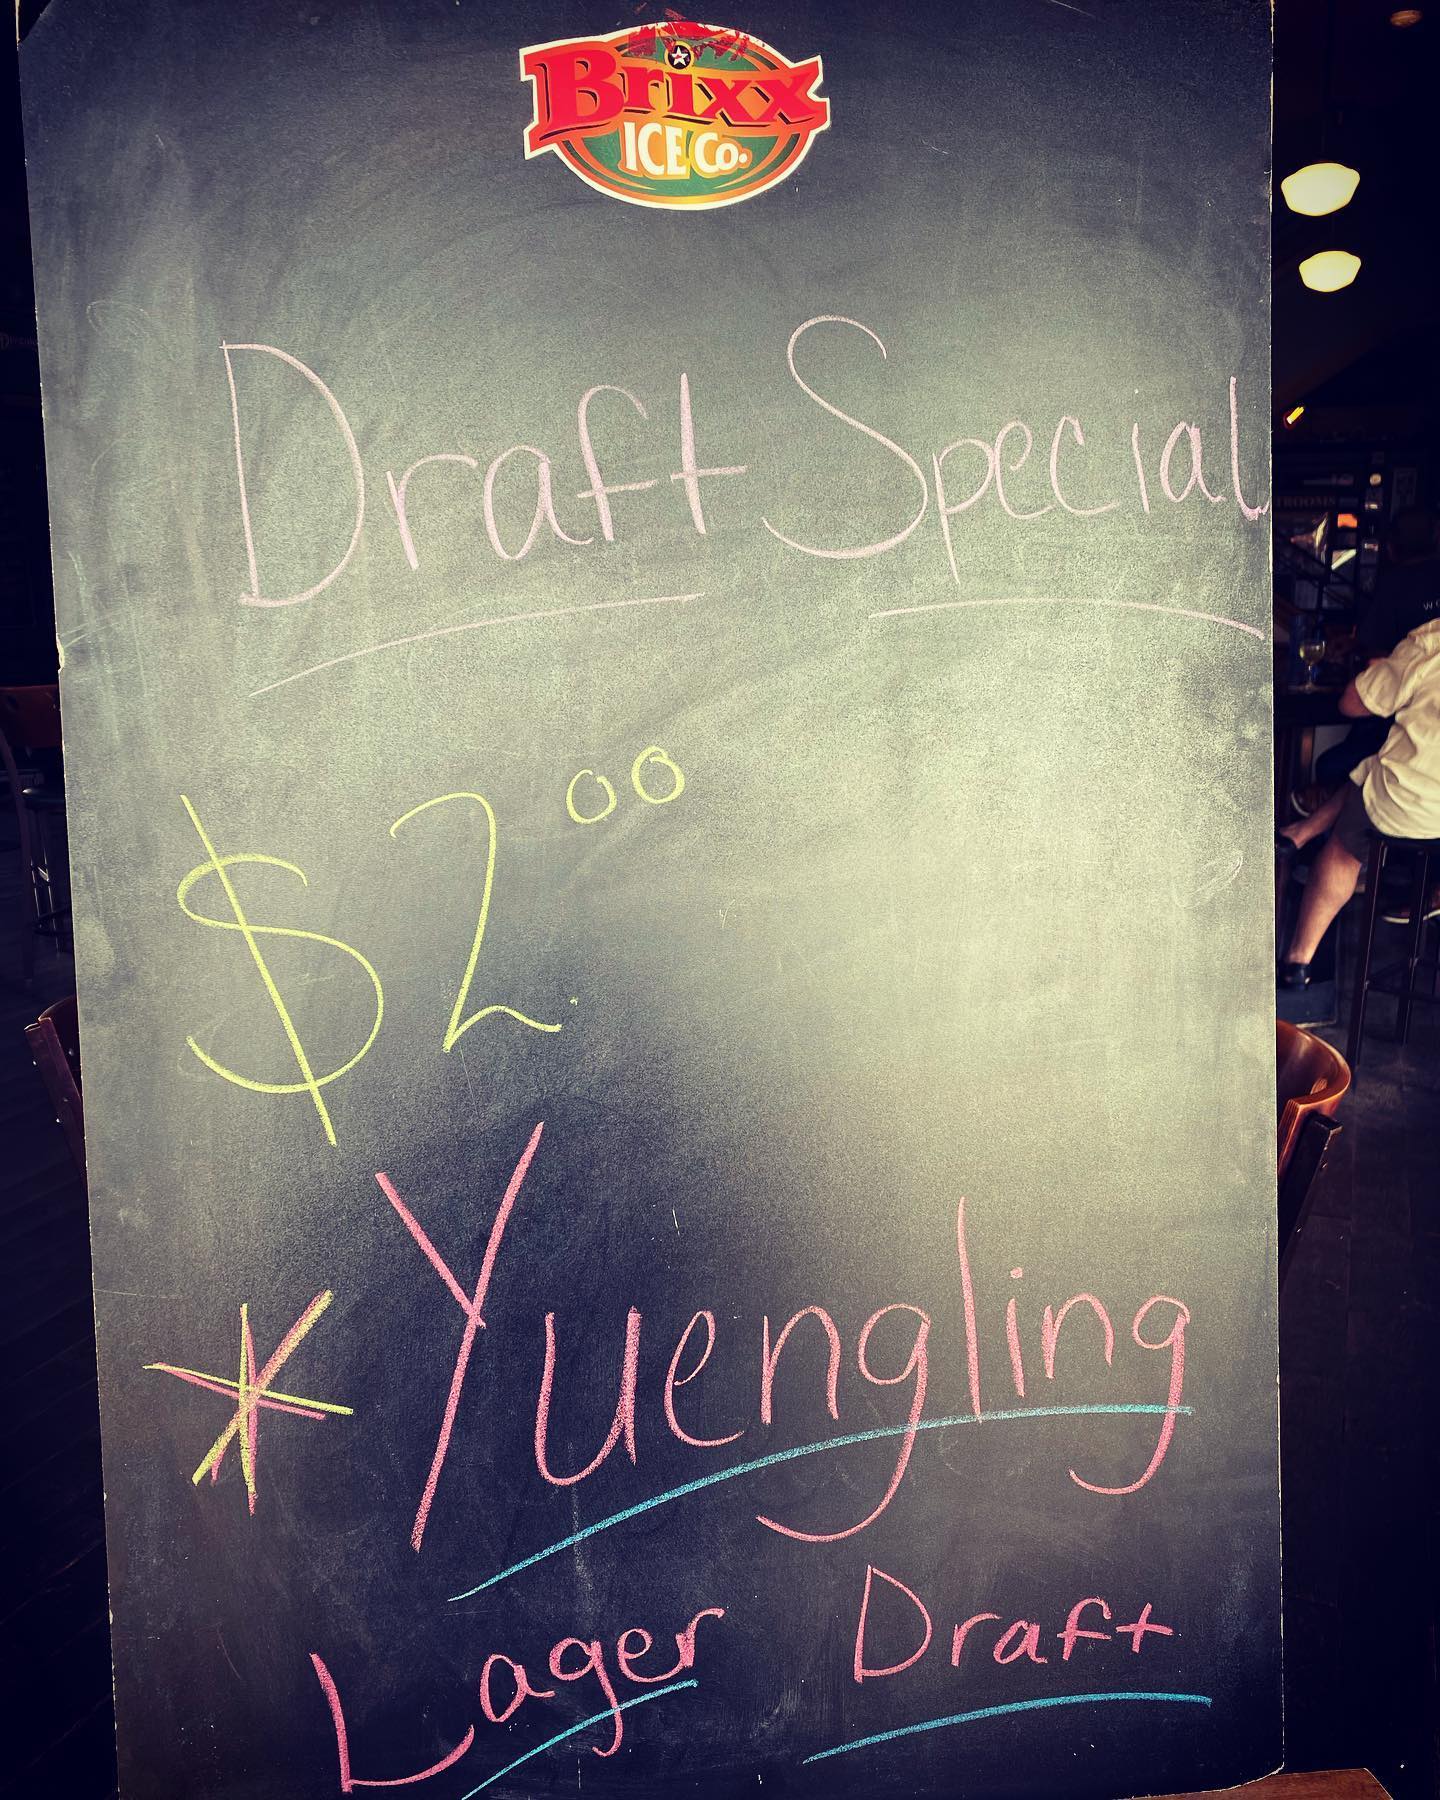 Brixx
ICE Co.
Draft Special
$2.00
* Yuengling
Lager Draft
TROOMS